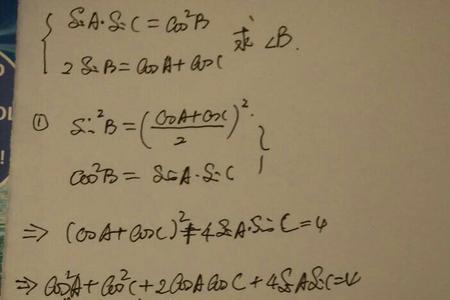 { SinA·SinC = Cos²B
2SinB = CosA + CosC 求 ∠B.
① Sin²B = (CosA+CosC / 2)²
Cos²B = SinA·SinC
⇒ (CosA + CosC)² + 4SinA·SinC = 4
⇒ Cos²A + Cos²C + 2CosACosC + 4SinASinC = 4